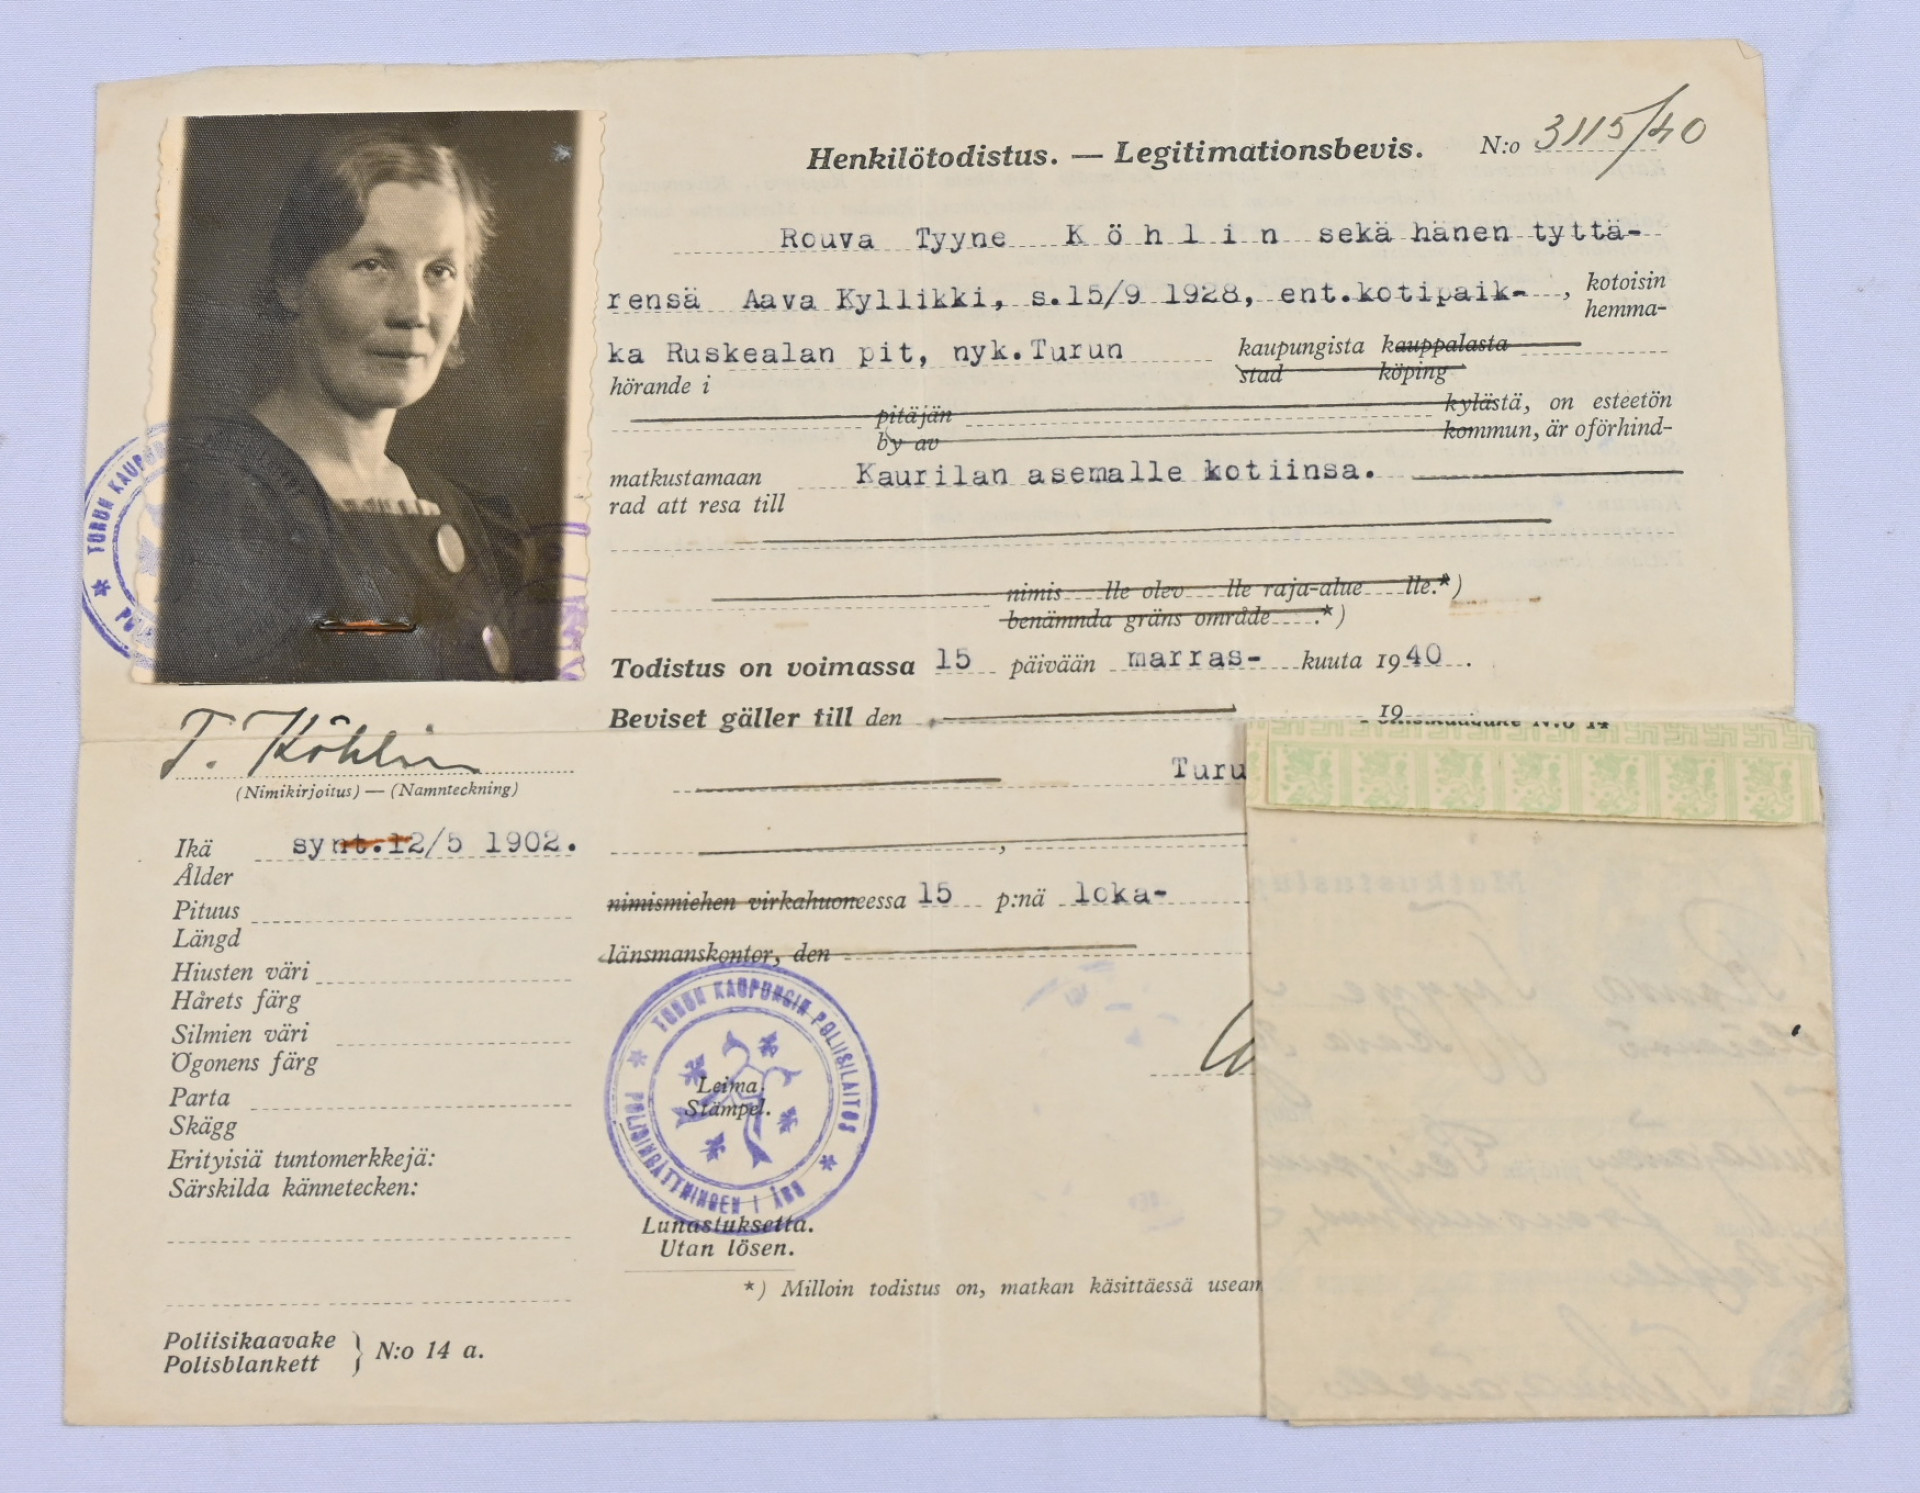 Henkilötodistus. — Legitimationsbevis. N:o 3115/40
Rouva Tyyne Köhlin sekä hänen tyttä-
rensä Aava Kyllikki, s.15/9 1928, ent.kotipaik- , kotoisin
hemma-
ka Ruskealan pit, nyk.Turun kaupungista kauppalasta
hörande i stad köping
pitäjän kylästä, on esteetön
by av kommun, är oförhind-
matkustamaan Kaurilan asemalle kotiinsa.
rad att resa till
nimis lle olev lle raja-alue lle.*)
benämnda gräns område .*)
Todistus on voimassa 15 päivään marras- kuuta 1940 .
Beviset gäller till den 19
N:o 14
T. Köhlin
(Nimikirjoitus) — (Namnteckning)
Turu
Ikä synt.12/5 1902.
Ålder
,
nimismiehen virkahuoneessa 15 p:nä loka-
länsmanskontor, den
Pituus
Längd
Hiusten väri
Hårets färg
Silmien väri
Ögonens färg
Parta
Skägg
Erityisiä tuntomerkkejä:
Särskilda kännetecken:
TURUN KAUPUNGIN POLIISILAITOS
POLISINRÄTTNINGEN I ÅBO
Leima.
Stämpel.
Lunastuksetta.
Utan lösen.
*) Milloin todistus on, matkan käsittäessä useam
Poliisikaavake
Polisblankett } N:o 14 a.
TURUN KAUPUN